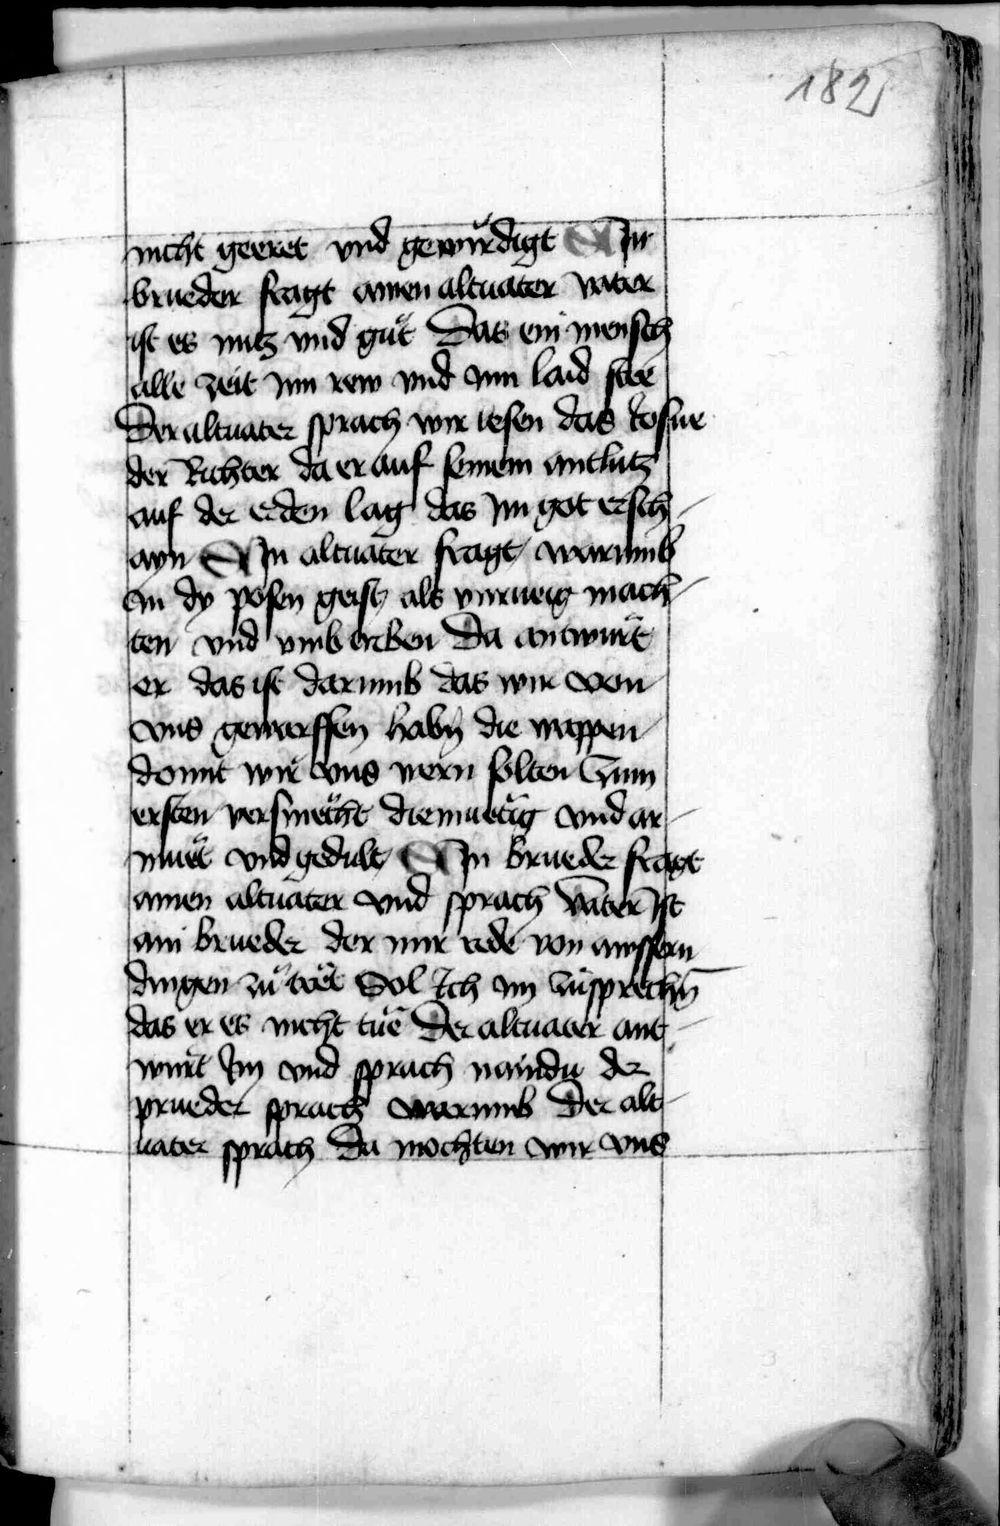 182
nicht geeret vnd gewürdigt Ain
brueder fragt ainen altuater vater
ist es nutz vnd guͦt Das ein mensch
alle zeit inn rew vnd inn laid stee
Der altuater sprach wir lesen das Iosue
der Richter da er auf seinem antlutz
auf der erden lag das im got ersch-
ayn Ain altuater fragt warumb
in dy posen geist als vnrueig mach-
ten vnd vmb triben Da antwurt
er das ist darumb das wir von
vns geworffen habn̄ die wappen
domit wir vns wern solten Zum
ersten versmecht diemuetig vnd ar-
muet vnd gedult Ain brueder fragt
ainen altuater vnd sprach vater ist
ain brueder der mir rede von aussern
dingen zuͦ treͤt Sol Ich im zuͦsprechn̄
das er es nicht tuͤe Der altuater ant-
wurt Im vnd sprach nain du der
prueder sprach warumb Der alt-
uater sprach Da mochten wir vns